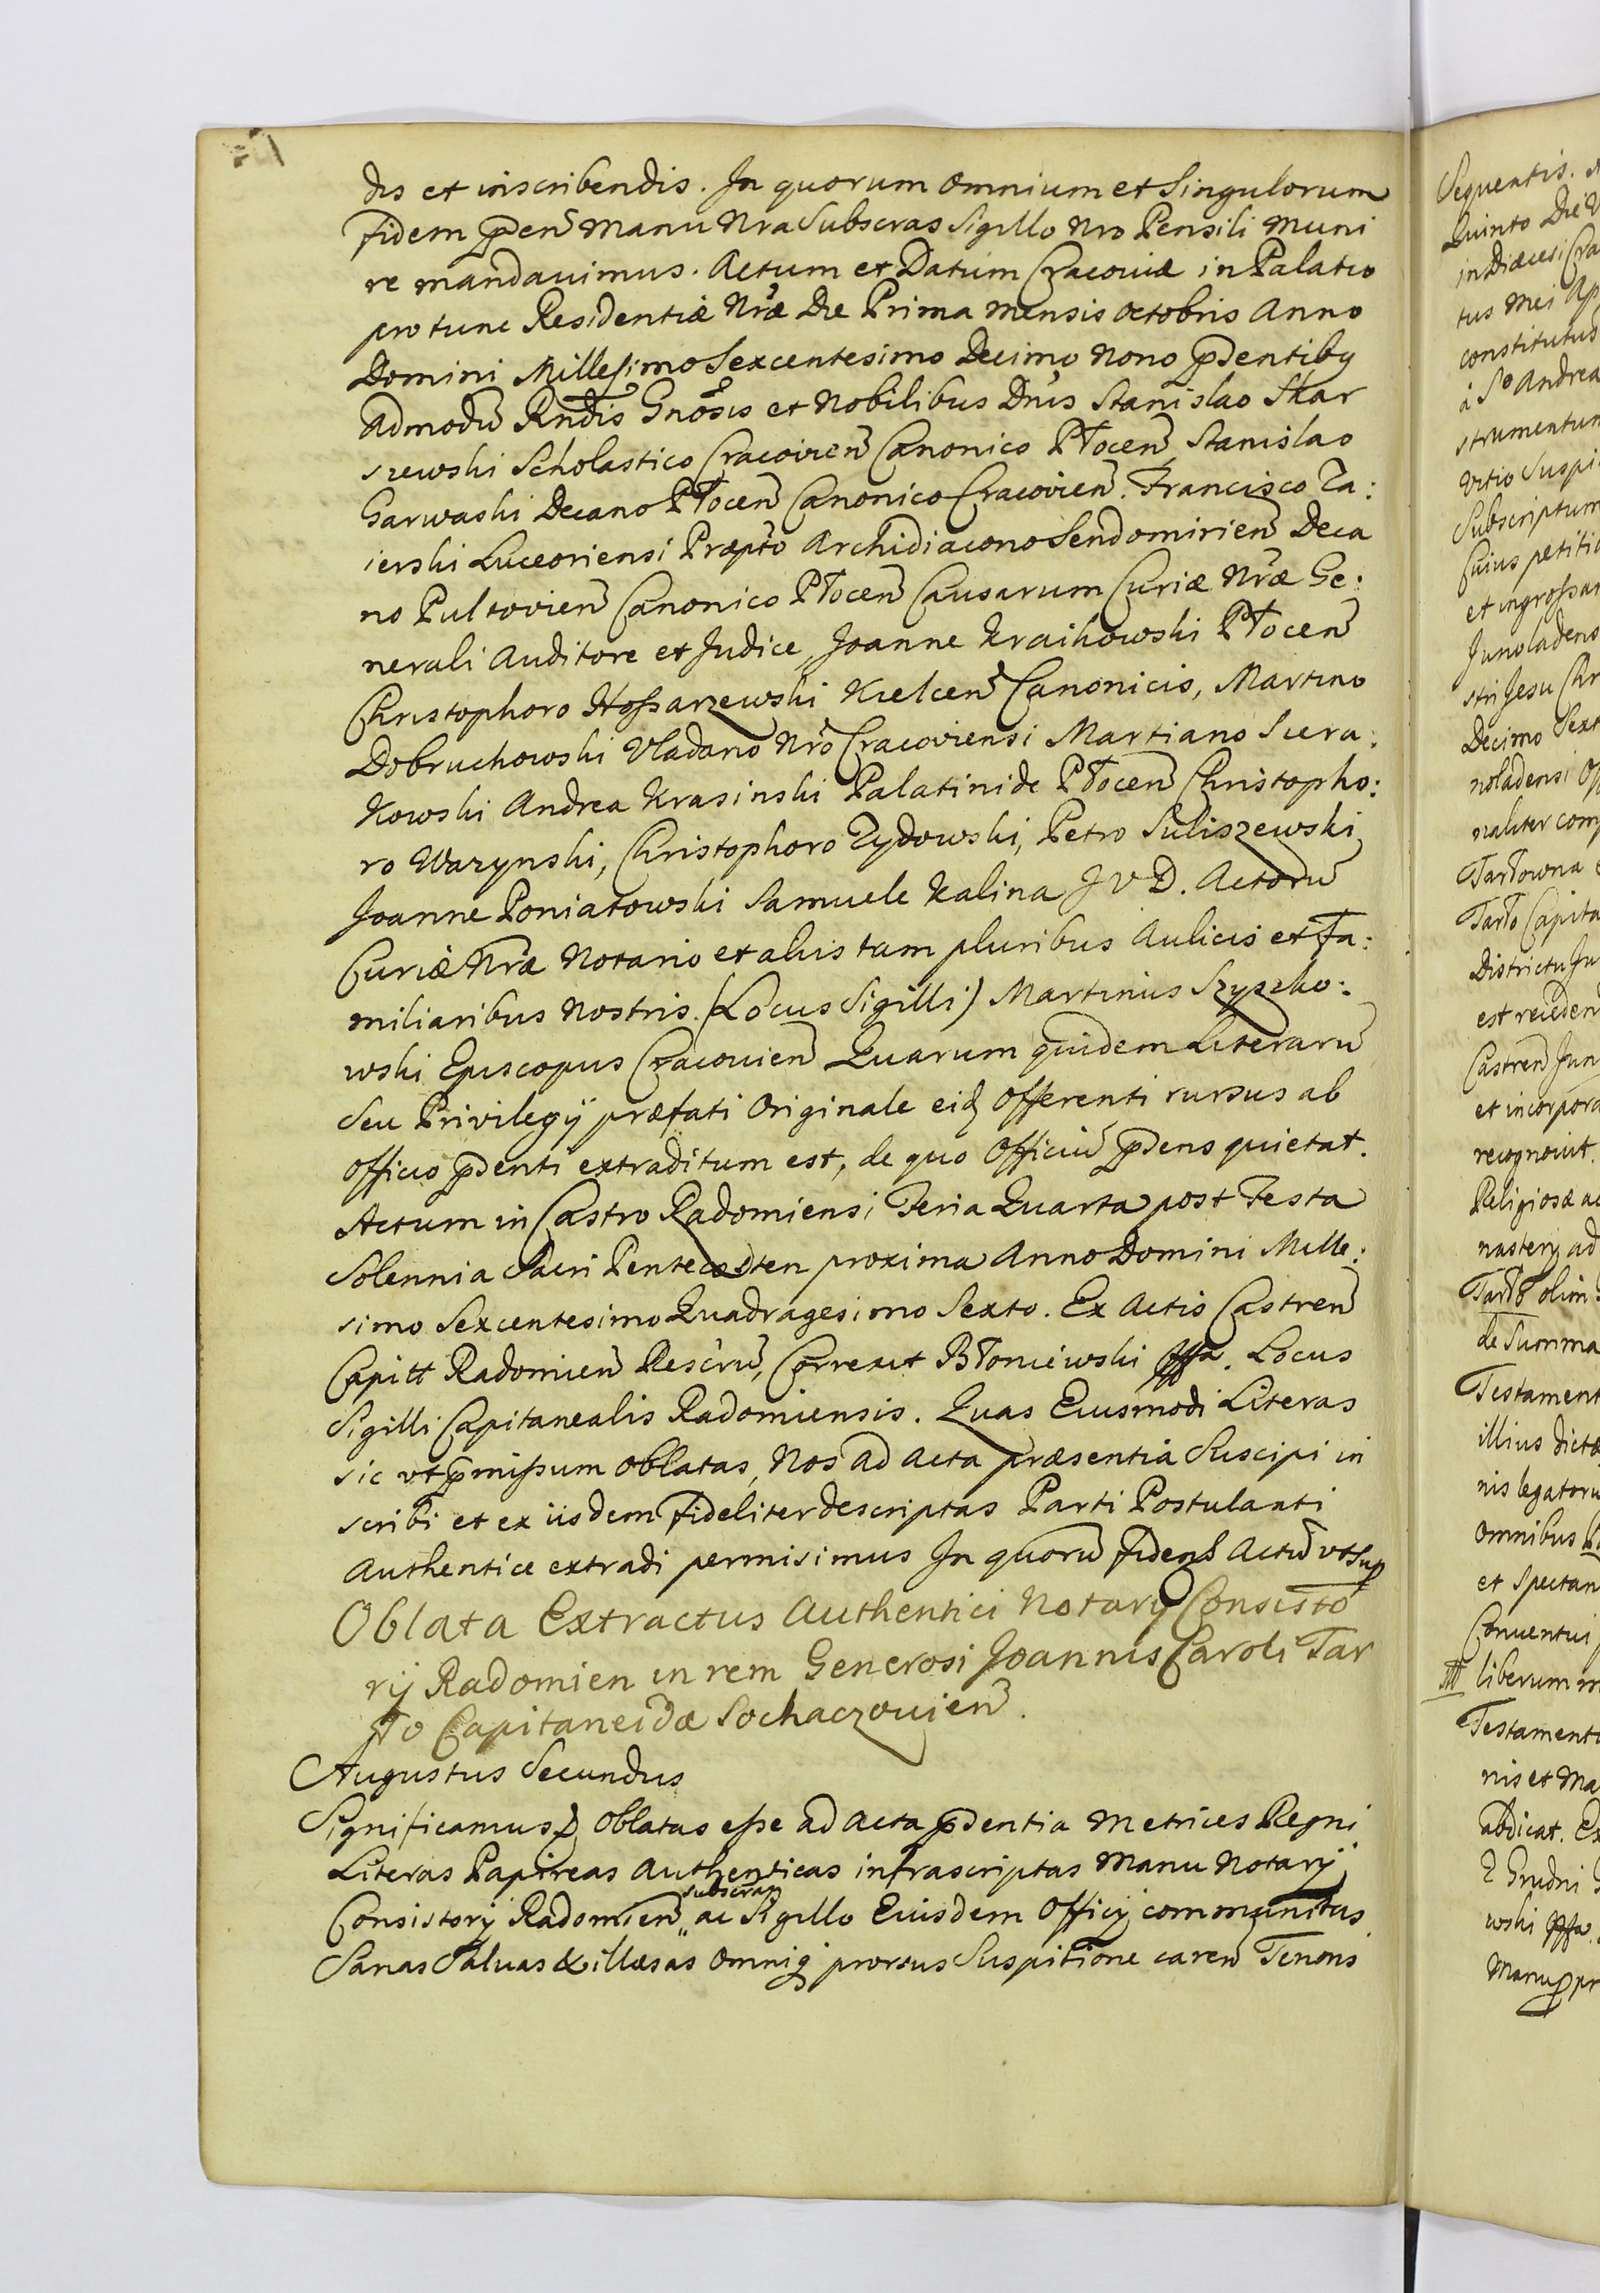 dis et inscribendis. In quorum omnium et Singulorum
fidem pñen manu Nra Subscras Sigillo Nro Pensili muni
re mandauimus. Actum et Datum Cracouiæ in Palatio
pro tunc Residentiæ Nræ Die Prima mensis octobris Anno
Domini Millesimo Sexcentesimo Decimo Nono pñdentibq
admodū Rndis Gnosis et Nobilibus Dnis Stanislao Skar
szewski Scholastico Cracovien Canonico Płocen Stanislao
Garwaski Decano Płocen Canonico Cracovien. Francisco Za:
ierski Luceoriensi Præpto Archidiacono Sendomirien Deca
no Pultovien Canonico Płocen Causarum Curiæ Nræ Ge:
nerali Auditore et Judice, Joanne Kraikowski Płocen
Christophoro Hossarzewski Kielcen Canonicis, Martino
Dobruchowski Vladano Nro Cracoviensi Martiano Siera:
kowski Andrea Krasinski Palatinide Płocen Christopho:
ro Warzynski, Christophoro Zydowski, Petro Suliszewski
Joanne Poniatowski Samuele Kalina J V D. Actorū
Curiæ Nræ Notario et aliis tam pluribus Aulicis et Fa:
miliaribus nostris. (Locus Sigilli) Martinus Szyszko:
wski Episcopus Cracouien Quarum quidem Literarū
seu Privilegÿ præfati Originale eid Offerenti rursus ab
officio pñdenti extraditum est, de quo Officiū pñdens quietat.
Actum in Castro Radomiensi Feria Quarta post Festa
Solennia Sacri Pentecosten proxima Anno Domini Mille:
simo Sexcentesimo Quadragesimo Sexto. Ex Actis Castren
Capitt Radomien Rescrū, Correxit Błoniewski mppa. Locus
Sigilli Capitanealis Radomiensis. Quas Eiusmodi Literas
sic vt pmissum oblatas, Nos ad acta præsentia Suscipi in
scribi et ex iisdem fideliter descriptas Parti Postulanti
Authentice extradi permisimus In quorū fidem Actū vt sup
Oblata Extractus Authentici Notarÿ Consisto
rÿ Radomien in rem Generosi Joannis Caroli Tar
ło Capitaneidæ Sochaczouien.
Augustus Secundus
Significamus Oblatas esse ad acta pñdentia metrices Regni
Literas Papireas Authenticas infrascriptas manu Notarÿ
Consistorÿ Radomien subscras ac Sigillo Eiusdem officÿ communitas
Sanas Saluas & illæsas omniq prorsus Suspitione caren Tenoris
Sequentis.
Quinto Die
in Diæcesi Cra
tus mei Ap
constitutus
à So Andrea
strumentum
vitio Suspi
Subscriptum
Cuius petitio
et ingrossa
Junoladens
stri Jesu Chr
Decimo Sext
noladensi
naliter com
Tarłowna
Tarło Capita
Districtu
est recedens
Castren
et incorpora
recognouit.
Religiosæ
nasterÿ ad
Tarło olim
de Summa
Testament
illius
nis legatoru
omnibus
et spectan
Conuentui
liberum
Testament
nis et Ma
abdicat. Ex
wski mppa.
Manu pr